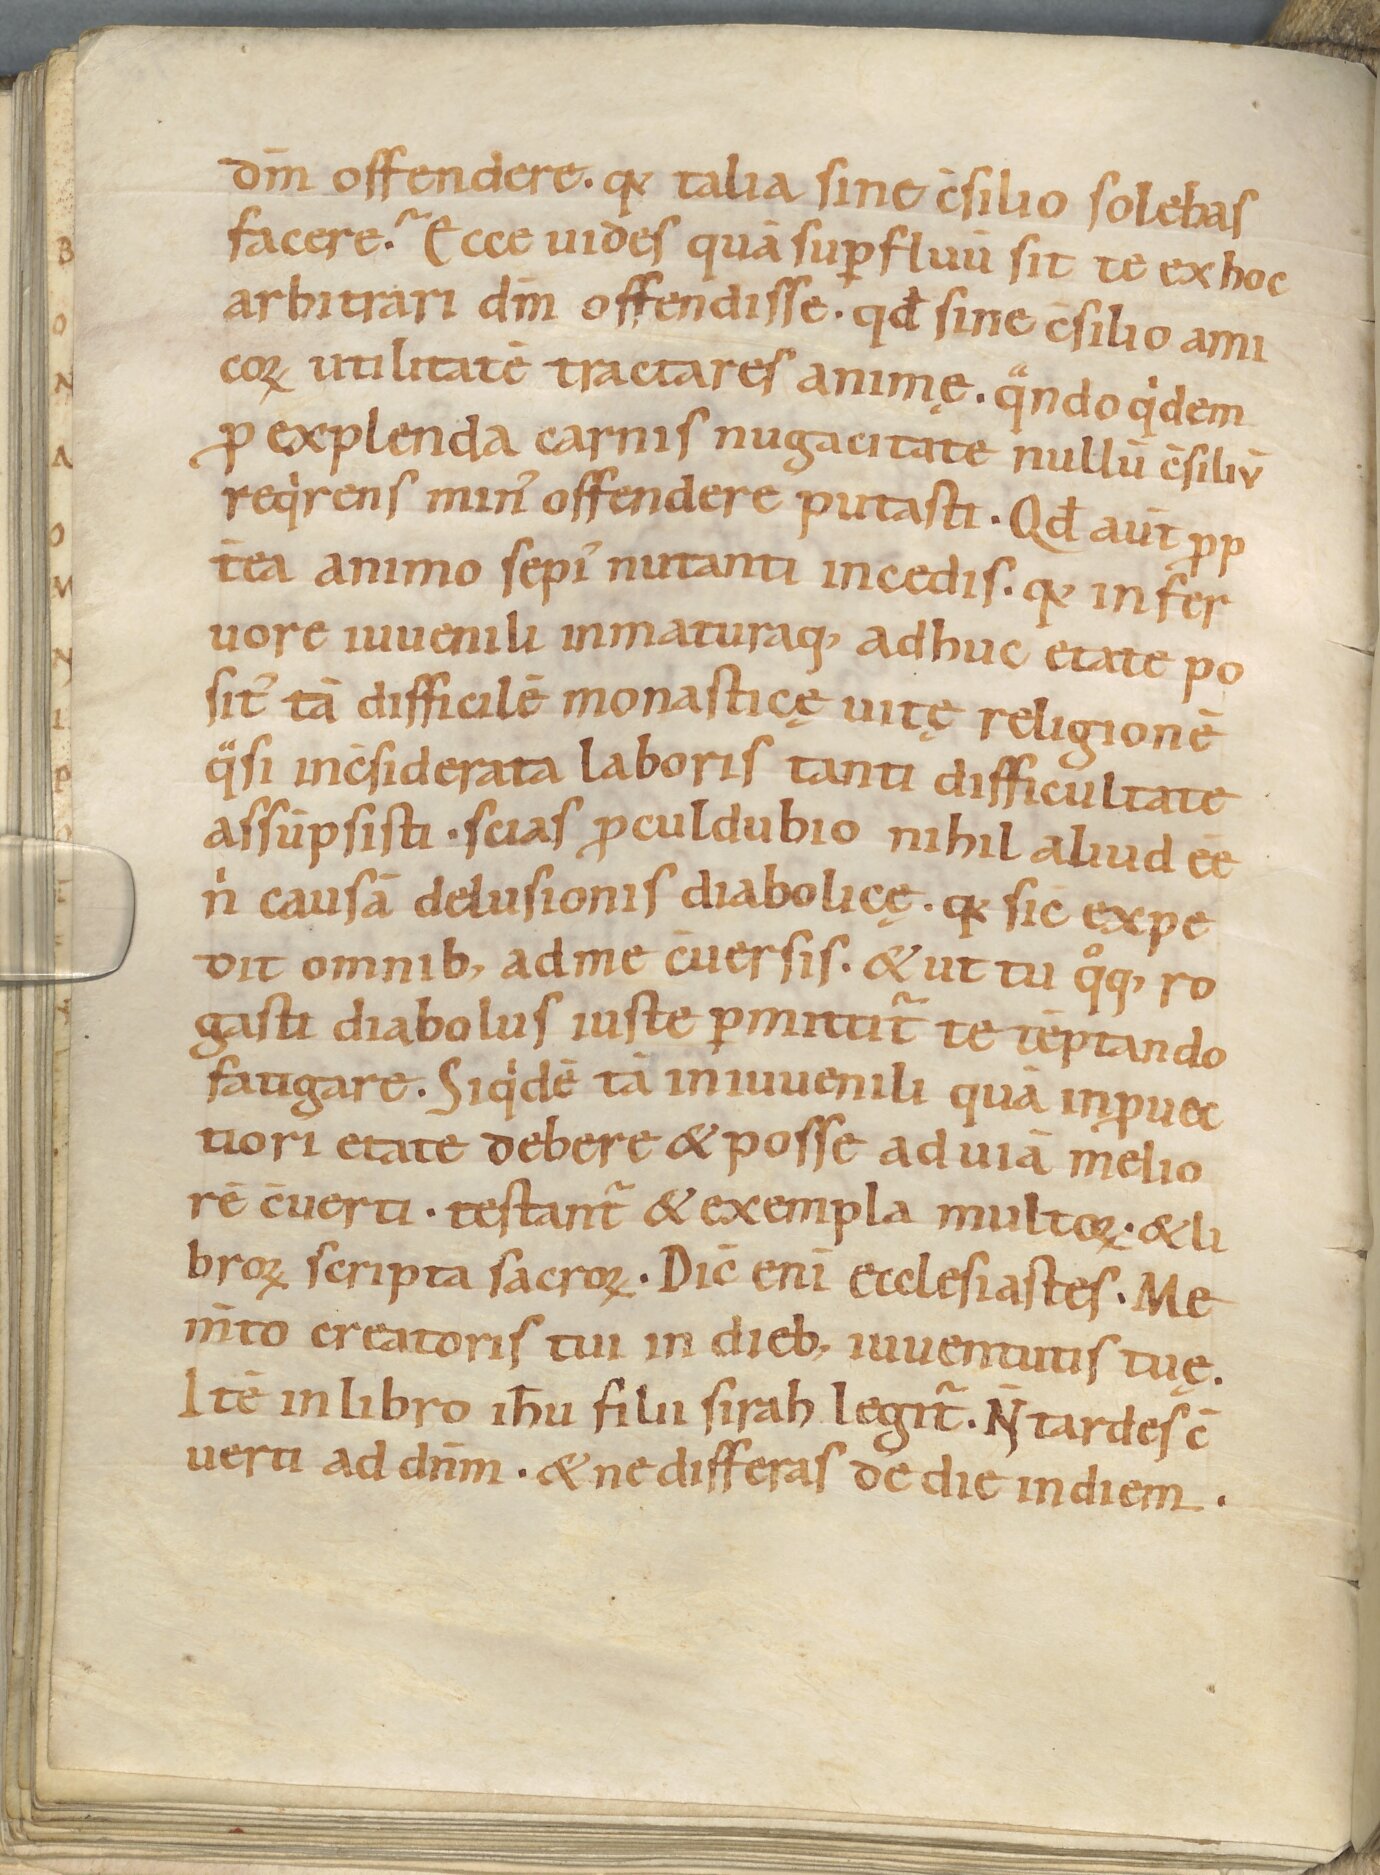 dm̄ offendere. qꝛ talia sine c̄silio solebas
facere.᷉ Ecce uides quā suꝑfluū sit te ex hoc
arbitrari dm̄ offendisse. qđ sine c̄silio ami
coꝝ utilitatē tractares animę. qͣndo qͥdem
ꝓ explenda carnis nugacitate nullū c̄siliū
reqͥrens minꝰ offendere putasti. Qđ aut̄ ꝓp
t̄ea animo sepiꝰ nutanti incedis. qꝛ in fer
uore iuuenili inmaturaq; adhuc etate po
sitꝰ tā difficilē monasticę uitę religionē
qͣsi inc̄siderata laboris tanti difficultate
assūpsisti. scias ꝓculdubio nihil aliud ēe
nͥ causā delusionis diabolicę. qꝛ sic̄ expe
dit omnib; ad me c̄uersis. & ut tu qͦq; ro
gasti diabolus iuste ꝑmittit᷉ te tēptando
fatigare. Siqͥdē tā in iuuenili quā in ꝓuec
tiori etate debere & posse ad uiā melio
rē c̄uerti. testant᷉ & exempla multoꝝ. & li
broꝝ scripta sacroꝝ. Dic̄ eni̅ ecclesiastes. Me
m̄to creatoris tui in dieb; iuuentutis tuę.
Itē in libro ih̄u filii sirah legit᷉. N̄ tardes c̄
uerti ad dn̄m. & ne differas de die in diem.